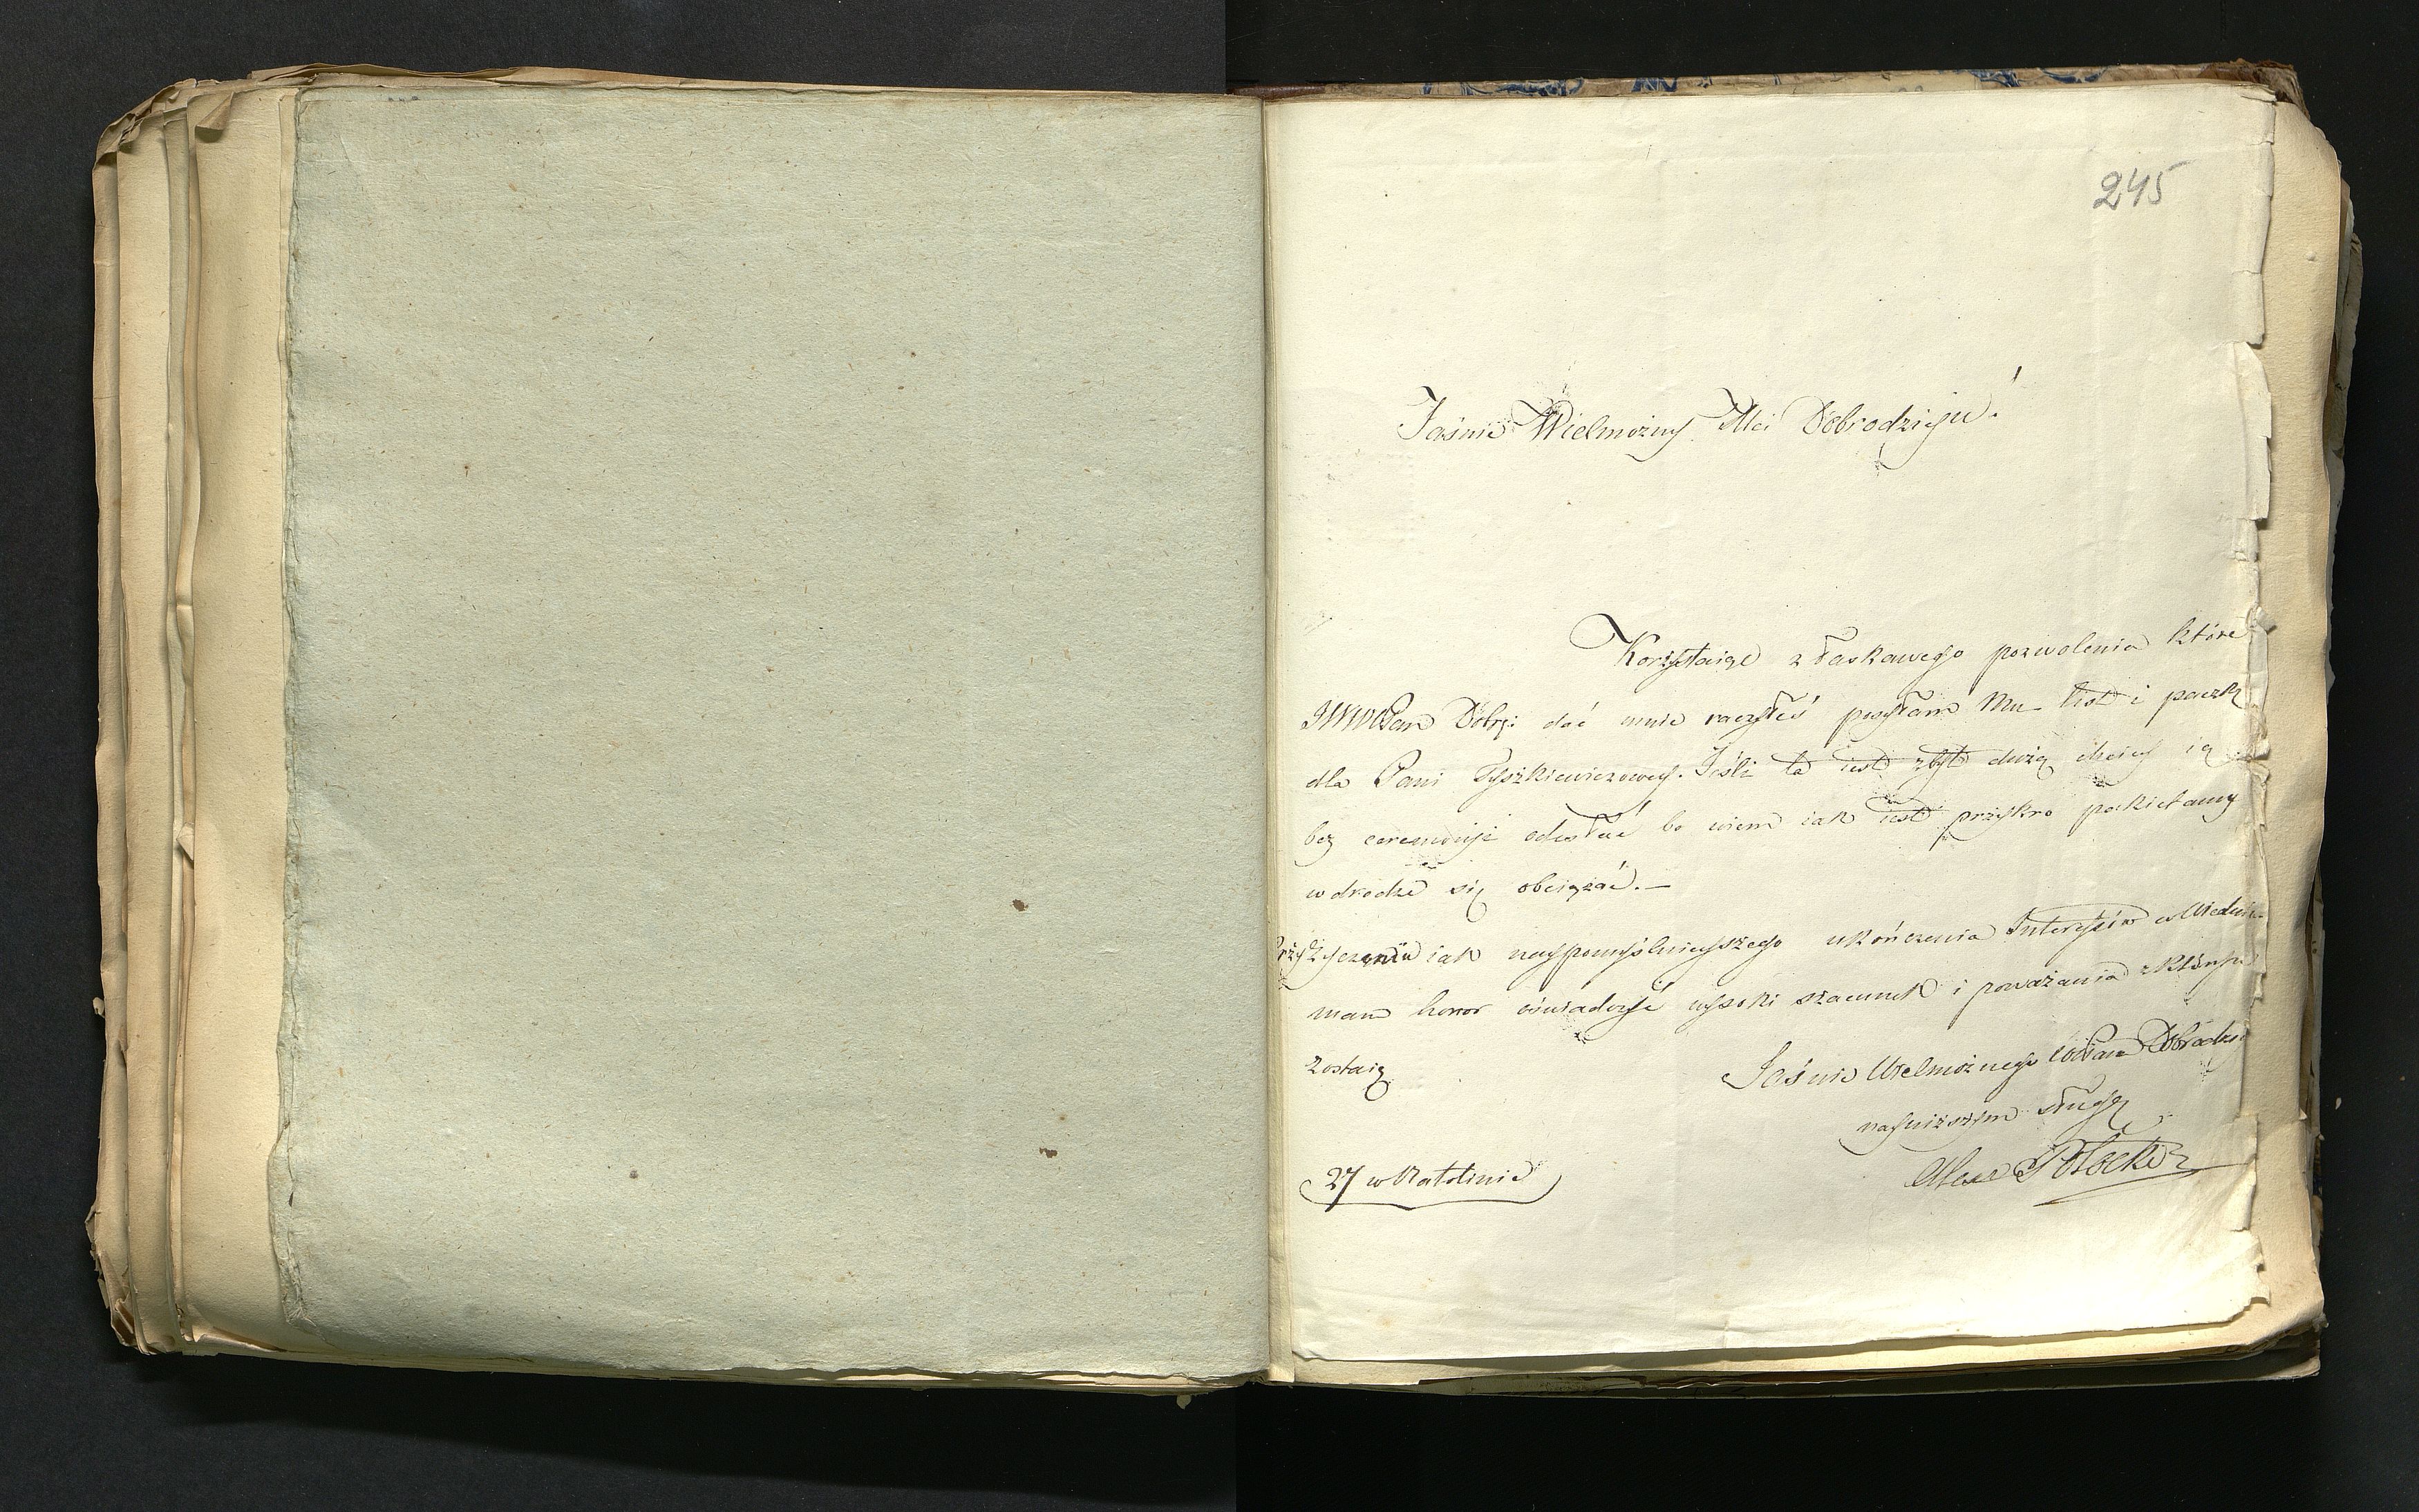 245
Jaśnie Wielmożny Mci Dobrodzieju!
Korzystaiąc z łaskawego pozwolenia które
JWWPan Dobrz: dać mnie raczyłeś posyłam Mu list i paczkę
dla Pani Tyszkiewiczowey. Jeśli ta iest zbyt dużą chciey ią
bez ceremonyi odesłać bo wiem iak iest przykro pakietamy
w drodze się obciążać. —
Przy życzeniu iak naypomyślnieyszego ukończenia Interessów w Wiedniu
mam honor oświadczyć wysoki szacunek i poważania z którym
zostaię
Jaśnie Wielmożnego WPana Dobrodzie
nayniższym sługą
Alex Potocki
27 w Natolinie